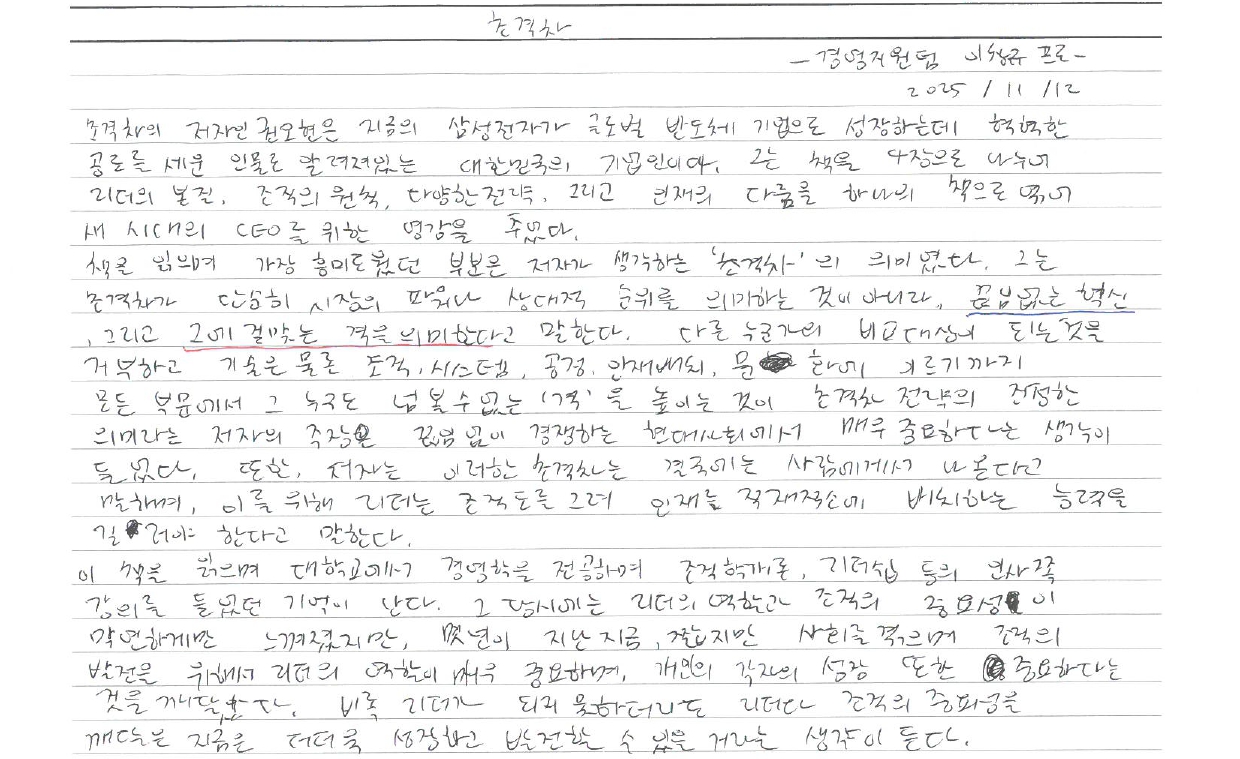 초격차
- 경영지원팀 이창규 프로 -
2025 / 11 / 12
초격차의 저자인 권오현은 지금의 삼성전자가 글로벌 반도체 기업으로 성장하는데 혁혁한
공로를 세운 인물로 알려져있는 대한민국의 기업인이다. 그는 책을 4장으로 나누어
리더의 본질, 조직의 원칙, 다양한 전략, 그리고 인재의 다룸을 하나의 책으로 엮어
새 시대의 CEO를 위한 영감을 주었다.
책을 읽으며 가장 흥미로웠던 부분은 저자가 생각하는 '초격차'의 의미였다. 그는
초격차가 단순히 시장의 파워나 상대적 순위를 의미하는 것이 아니라, 끊임없는 혁신
, 그리고 그에 걸맞는 격을 의미한다고 말한다. 다른 누군가의 비교대상이 되는것을
거부하고 기술은 물론 조직, 시스템, 공정, 인재배치, 문화에 이르기까지
모든 부문에서 그 누구도 넘볼 수 없는 '격'을 높이는 것이 초격차 전략의 진정한
의미라는 저자의 주장은 끊임없이 경쟁하는 현대사회에서 매우 중요하다는 생각이
들었다. 또한, 저자는 이러한 초격차는 결국에는 사람에게서 나온다고
말하며, 이를 위해 리더는 조직도를 그려 인재를 적재적소에 배치하는 능력을
길러야 한다고 말한다.
이 책을 읽으며 대학교에서 경영학을 전공하며 조직학개론, 리더쉽 등의 인사쪽
강의를 들었던 기억이 난다. 그 당시에는 리더의 역할과 조직의 중요성이
막연하게만 느껴졌지만, 몇년이 지난 지금, 짧지만 사회를 겪으며 조직의
발전을 위해서 리더의 역할이 매우 중요하며, 개인의 각자의 성장 또한 중요하다는
것을 깨달았다. 비록 리더가 되지 못하더라도 리더와 조직의 중요성을
깨달은 지금은 더더욱 성장하고 발전할 수 있을 거라는 생각이 든다.